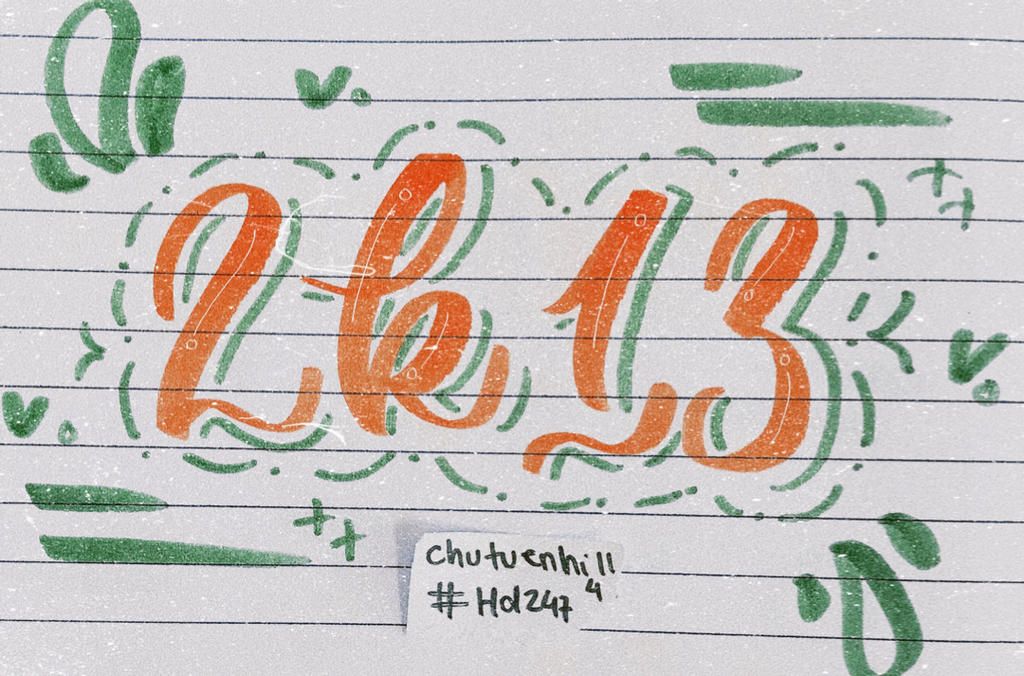 2k13
chutuenhill
#Hd2474